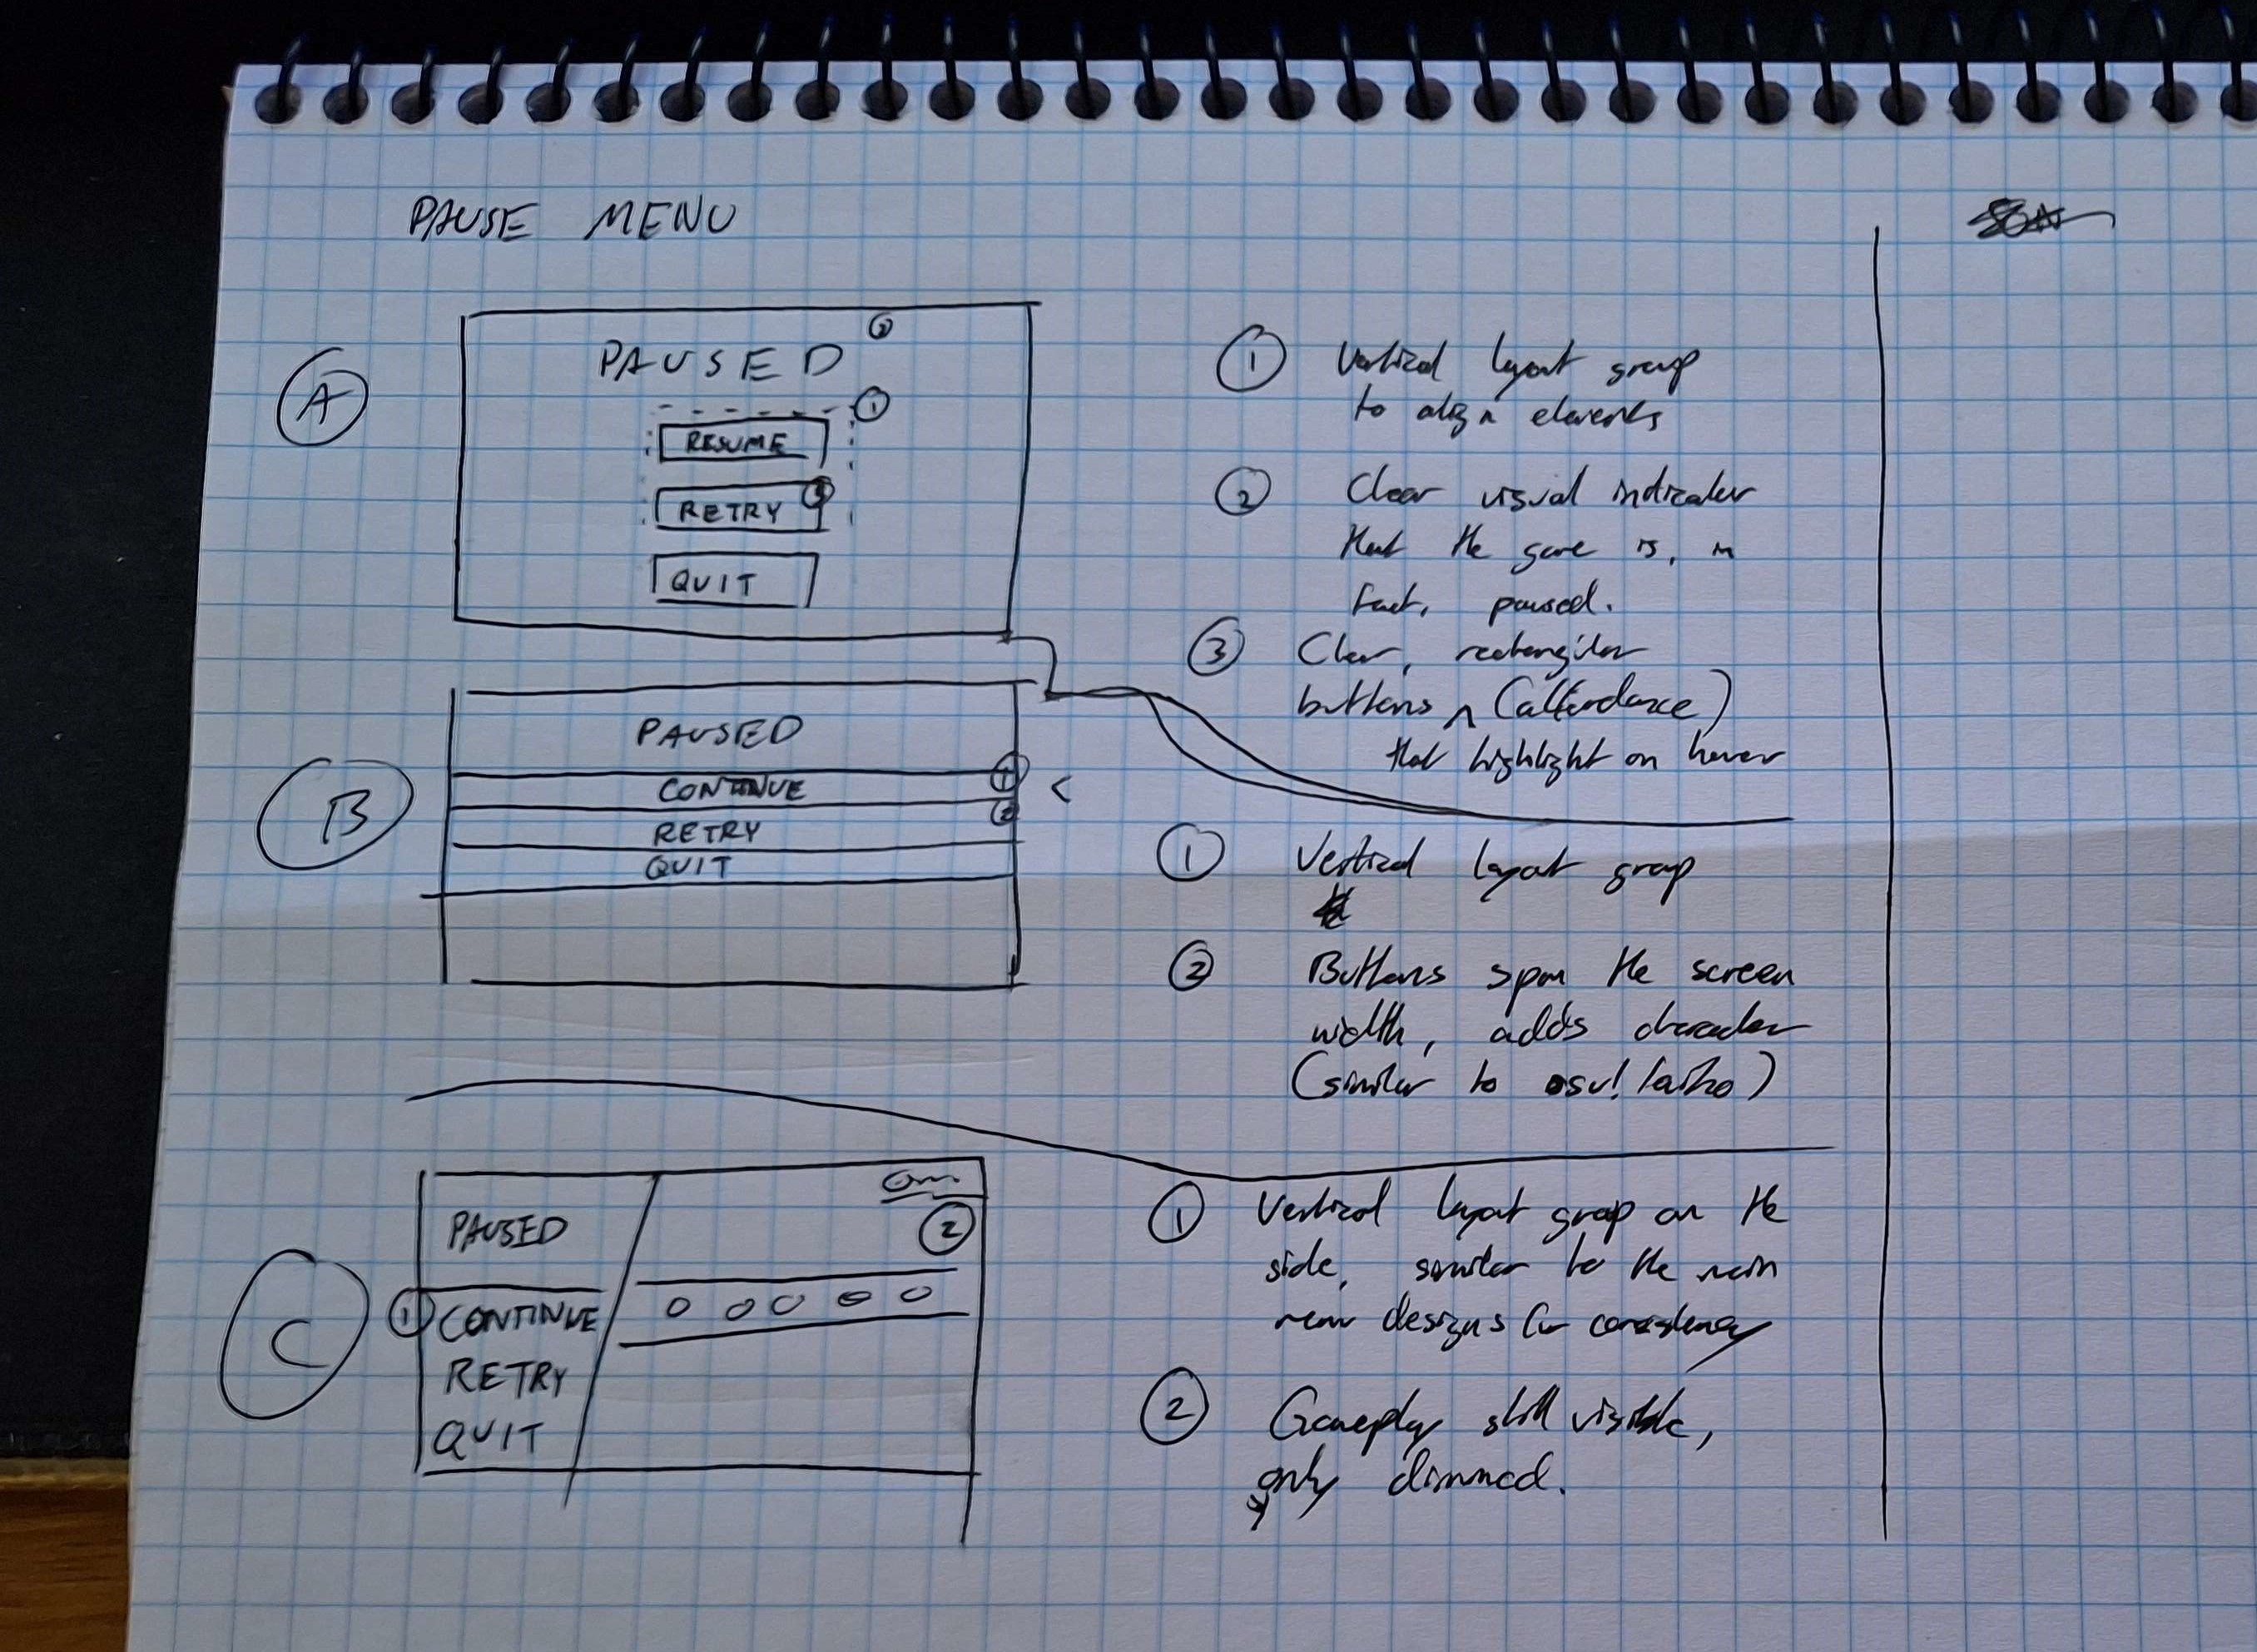 PAUSE MENU
A
PAUSED
2
1
RESUME
RETRY
3
QUIT
1 Vertical layout group
to align elements
2 Clear visual indicator
that the game is, in
fact, paused.
3 Clear, rectangular
buttons ^ (affordance)
that highlight on hover
B
PAUSED
CONTINUE
1
2
RETRY
QUIT
<
1 Vertical layout group
2 Buttons span the screen
width, adds character
(similar to osu!taiko)
C
PAUSED
2
1 CONTINUE
RETRY
QUIT
1 Vertical layout group on the
side, similar to the main
menu designs for consistency
2 Gameplay still visible,
only dimmed.